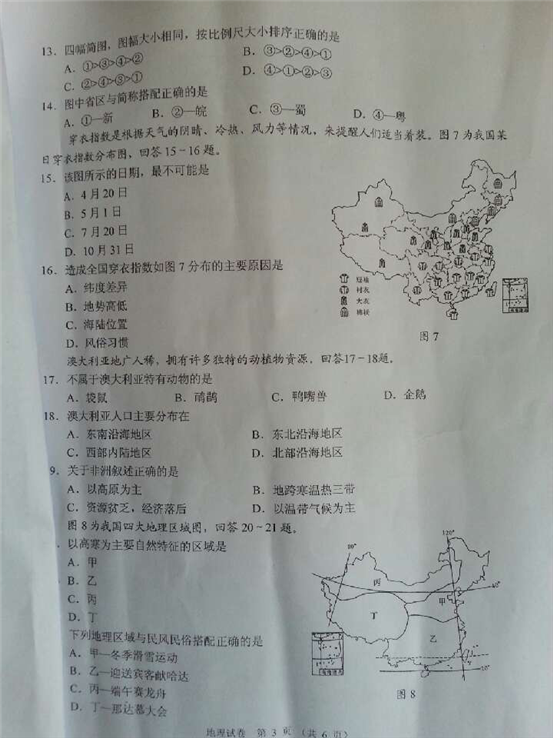 13. 四幅简图，图幅大小相同，按比例尺大小排序正确的是
A. ①>③>④>② B. ③>②>④>①
C. ②>④>③>① D. ④>①>②>③
14. 图中省区与简称搭配正确的是
A. ①—新 B. ②—皖 C. ③—蜀 D. ④—粤
穿衣指数是根据天气的阴晴、冷热、风力等情况，来提醒人们适当着装。图7为我国某
日穿衣指数分布图，回答15－16题。
15. 该图所示的日期，最不可能是
A. 4月20日
B. 5月1日
C. 7月20日
D. 10月31日
16. 造成全国穿衣指数如图7分布的主要原因是
A. 纬度差异
B. 地势高低
C. 海陆位置
D. 风俗习惯
短袖
衬衣
大衣
棉袄
图7
澳大利亚地广人稀，拥有许多独特的动植物资源，回答17－18题。
17. 不属于澳大利亚特有动物的是
A. 袋鼠 B. 鸸鹋 C. 鸭嘴兽 D. 企鹅
18. 澳大利亚人口主要分布在
A. 东南沿海地区 B. 东北沿海地区
C. 西部内陆地区 D. 北部沿海地区
9. 关于非洲叙述正确的是
A. 以高原为主 B. 地跨寒温热三带
C. 资源贫乏，经济落后 D. 以温带气候为主
图8为我国四大地理区域图，回答20－21题。
. 以高寒为主要自然特征的区域是
A. 甲
B. 乙
C. 丙
D. 丁
下列地理区域与民风民俗搭配正确的是
A. 甲—冬季滑雪运动
B. 乙—迎送宾客献哈达
C. 丙—端午赛龙舟
D. 丁—那达慕大会
120°
丙
甲
丁
乙
图8
地理试卷 第3页（共6页）